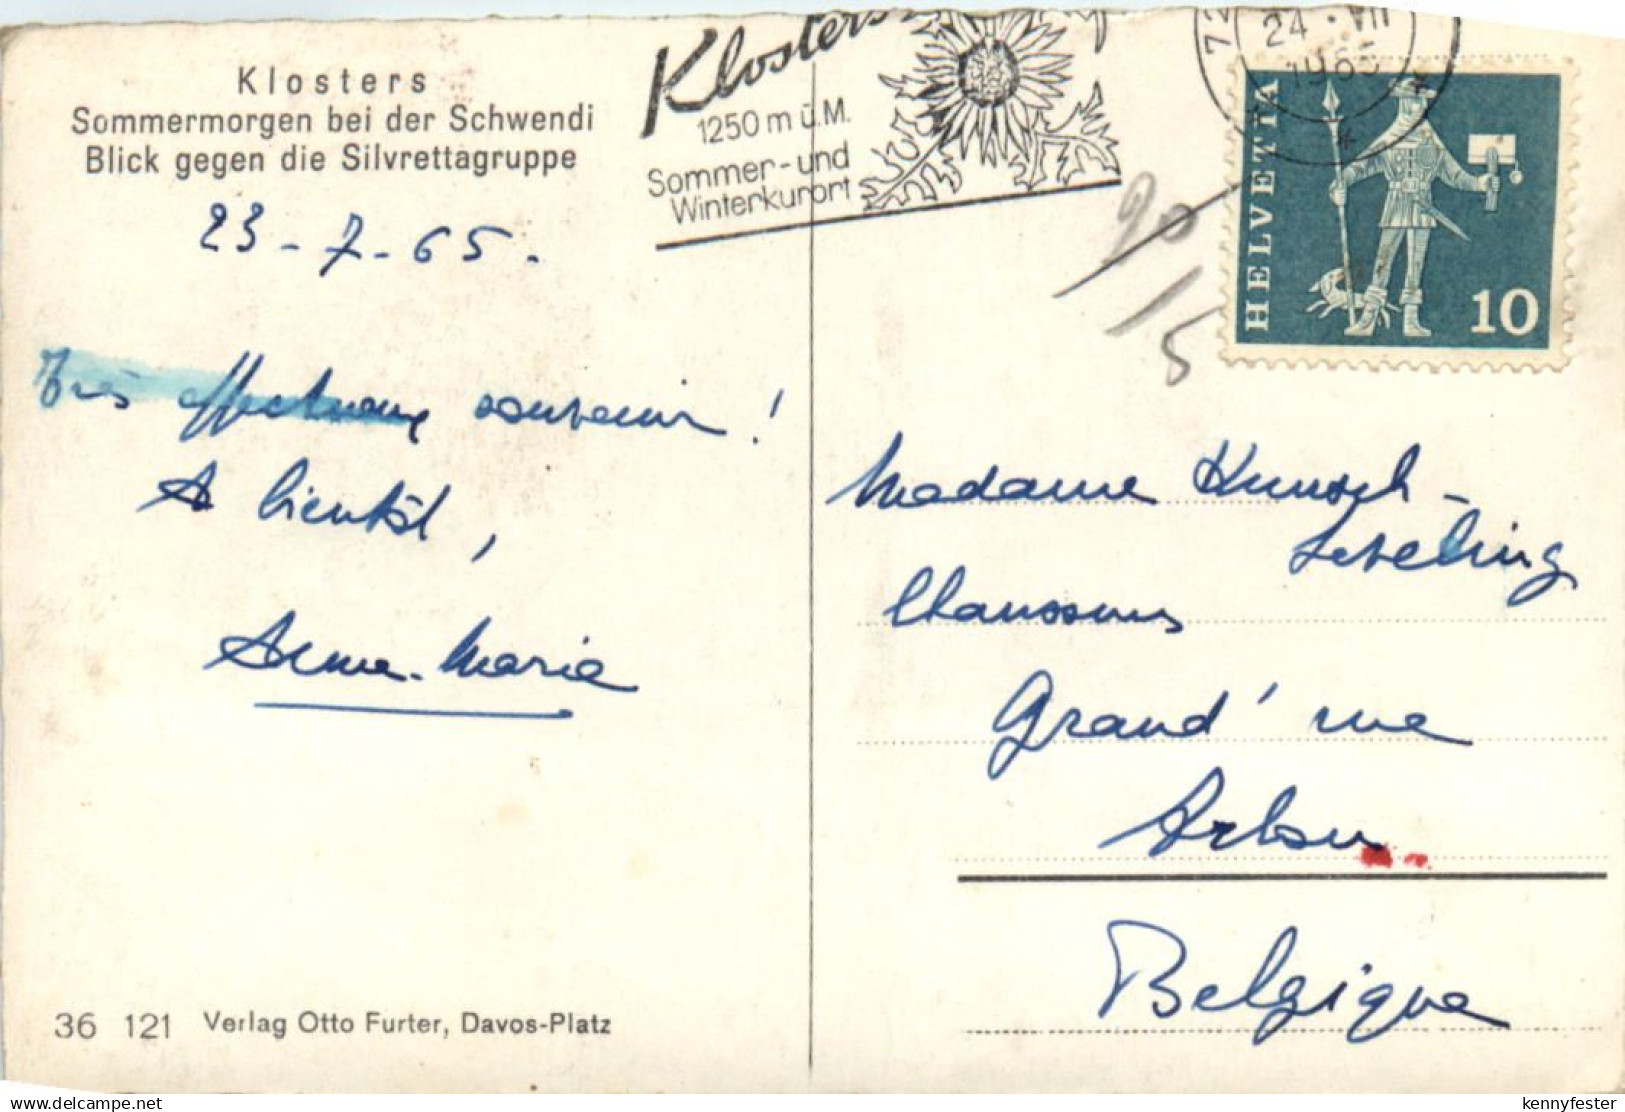 Klosters
Sommermorgen bei der Schwendi
Blick gegen die Silvrettagruppe
23-7-65.
Très affectueux souvenir !
A bientôt,
Anne-Marie
36 121 Verlag Otto Furter, Davos-Platz
Klosters
1250 m ü.M.
Sommer- und
Winterkurort
24 · VII
1965
HELVETIA
10
90/
15
Madame Kunsch-
Chaussures
Grand' rue
Arlon
Belgique
www.delcampe.net
kennyfester